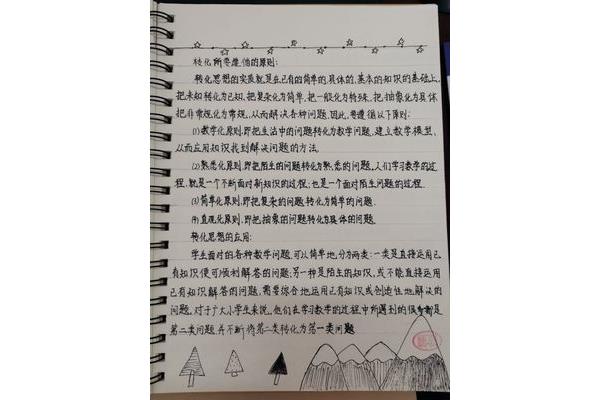 转化所要遵循的原则:
转化思想的实质就是在已有的简单的、具体的、基本的知识的基础上,
把未知转化为已知、把复杂化为简单、把一般化为特殊、把抽象化为具体
把非常规化为常规,从而解决各种问题。因此,要遵循以下原则:
(1)数学化原则,即把生活中的问题转化为数学问题,建立数学模型,
从而应用知识找到解决问题的方法.
(2)熟悉化原则,即把陌生的问题转化为熟悉的问题。人们学习数学的过
程,就是一个不断面对新知识的过程;也是一个面对陌生问题的过程.
(3)简单化原则,即把复杂的问题转化为简单的问题.
(4)直观化原则,即把抽象的问题转化为具体的问题.
转化思想的应用:
学生面对的各种数学问题,可以简单地,分为两类:一类是直接运用已
有知识便可顺利解答的问题;另一种是陌生的知识,或不能直接运用
已有知识解答的问题,需要综合地运用已有知识或创造性地解决的
问题。对于广大小学生来说,他们在学习数学的过程中所遇到的很多都是
第二类问题,并不断将第二类转化为第一类问题